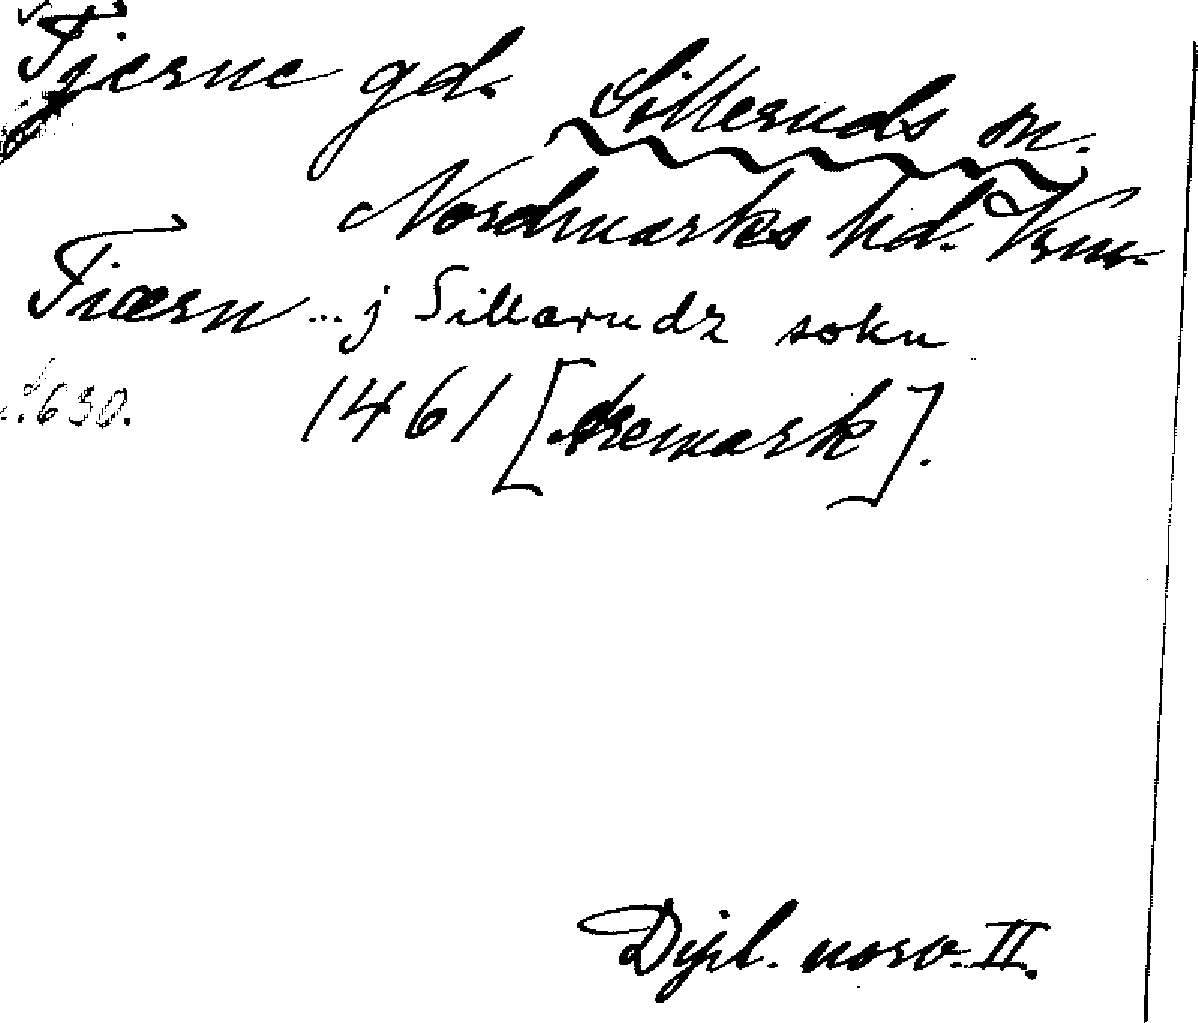 Tjerne gd. Silleruds sn.
Nordmarks hd. Vrm.
Tiærn ... j Sillarudz sokn
s. 630. 1461 [Aremark].
Dipl. norv. II.